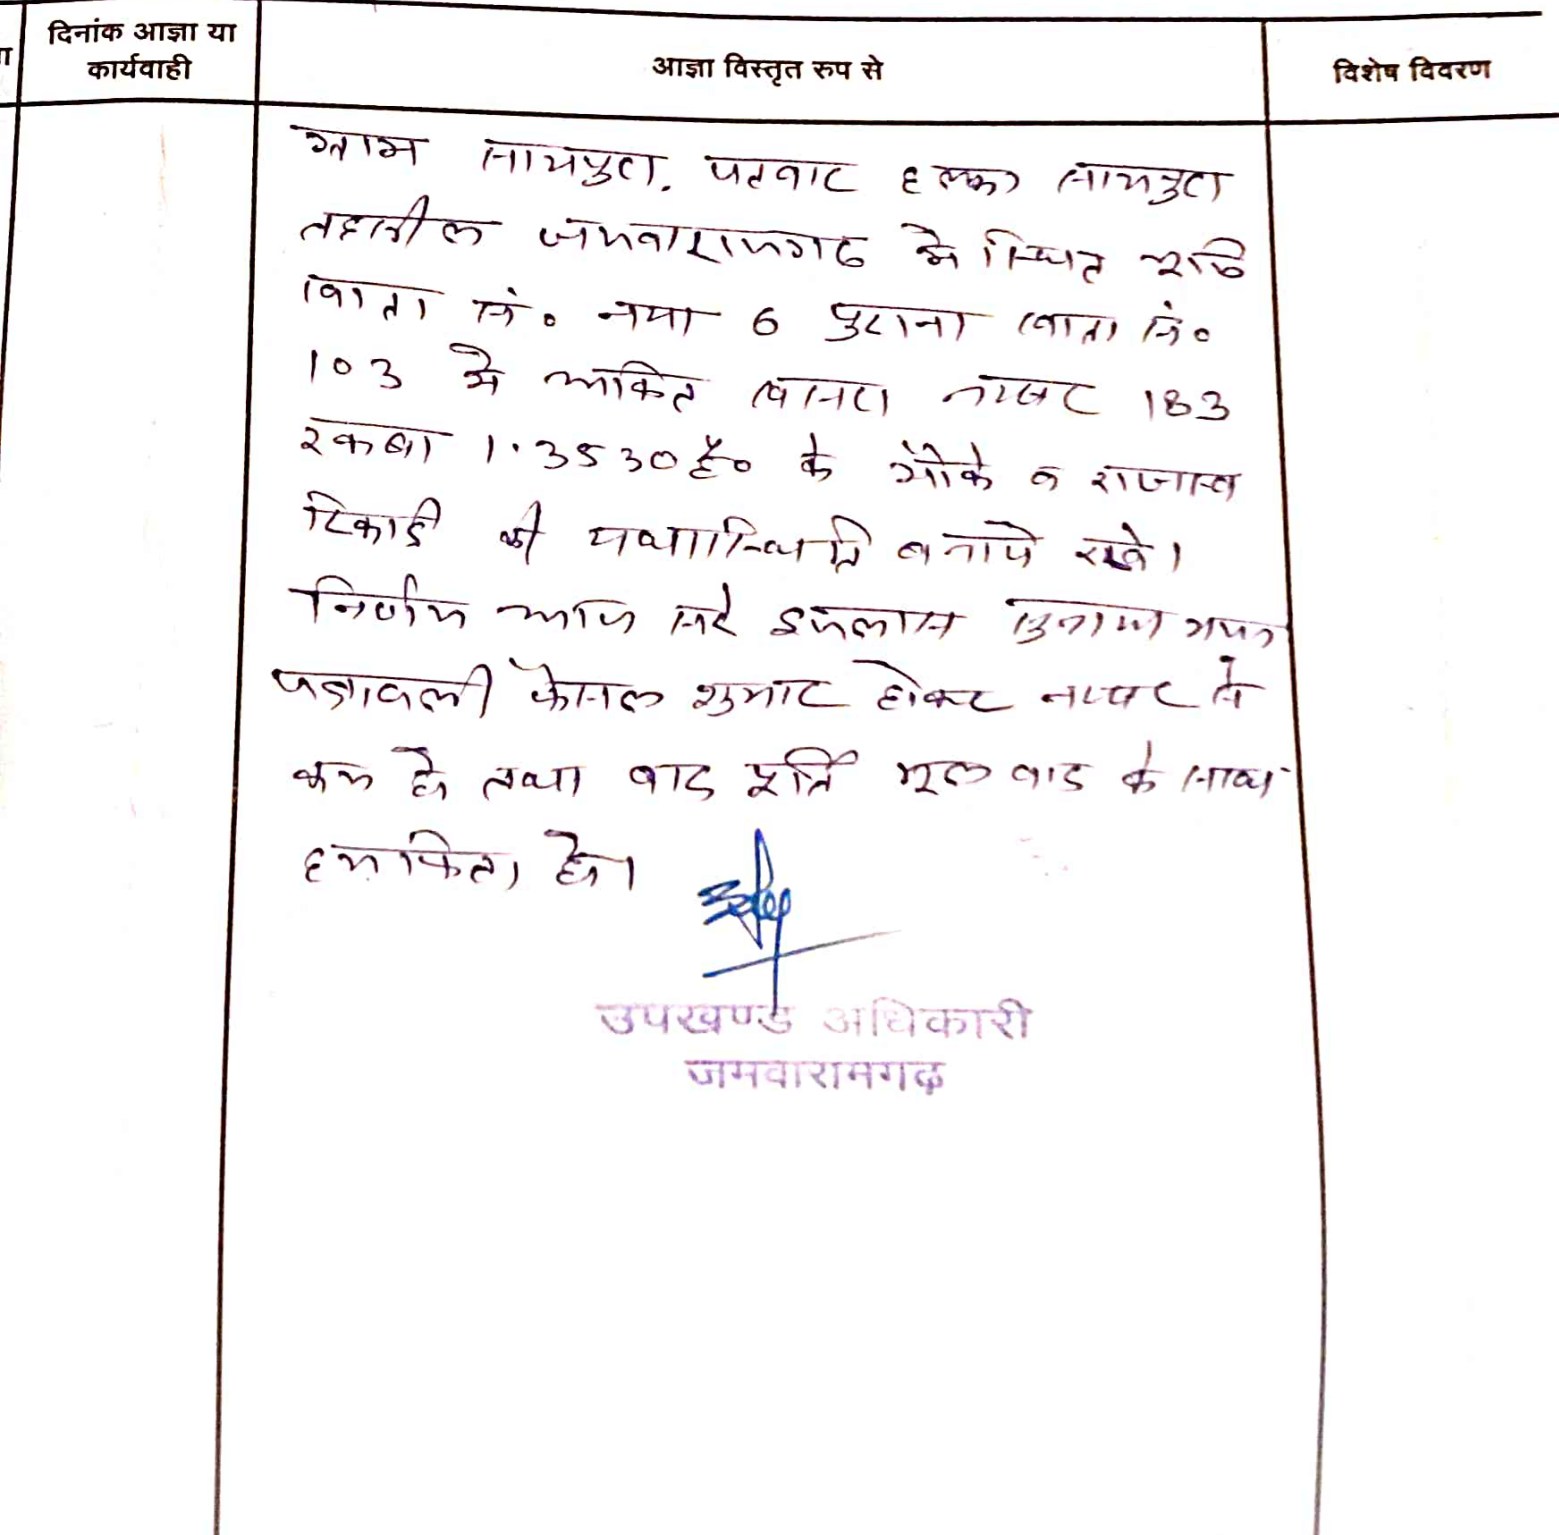 दिनांक आज्ञा या
कार्यवाही
आज्ञा विस्तृत रुप से
विशेष विवरण
ग्राम सायपुरा, पटवार हल्का सायपुरा
तहसील जमवारामगढ मे स्थित भूमि
खाता सं० नया 6 पुराना खाता सं०
103 मे अंकित खसरा नम्बर 183
रकबा 1.3530 है० के मौके व राजस्व
रिकार्ड की यथास्थिति बनाये रखे।
निर्णय आज सरे इजलास सुनाया गया
पत्रावली फैसल शुमार होकर नम्बर से
कम हो तथा बाद पूर्ति मूल वाद के साथ
हो।
उपखण्ड अधिकारी
जमवारामगढ़